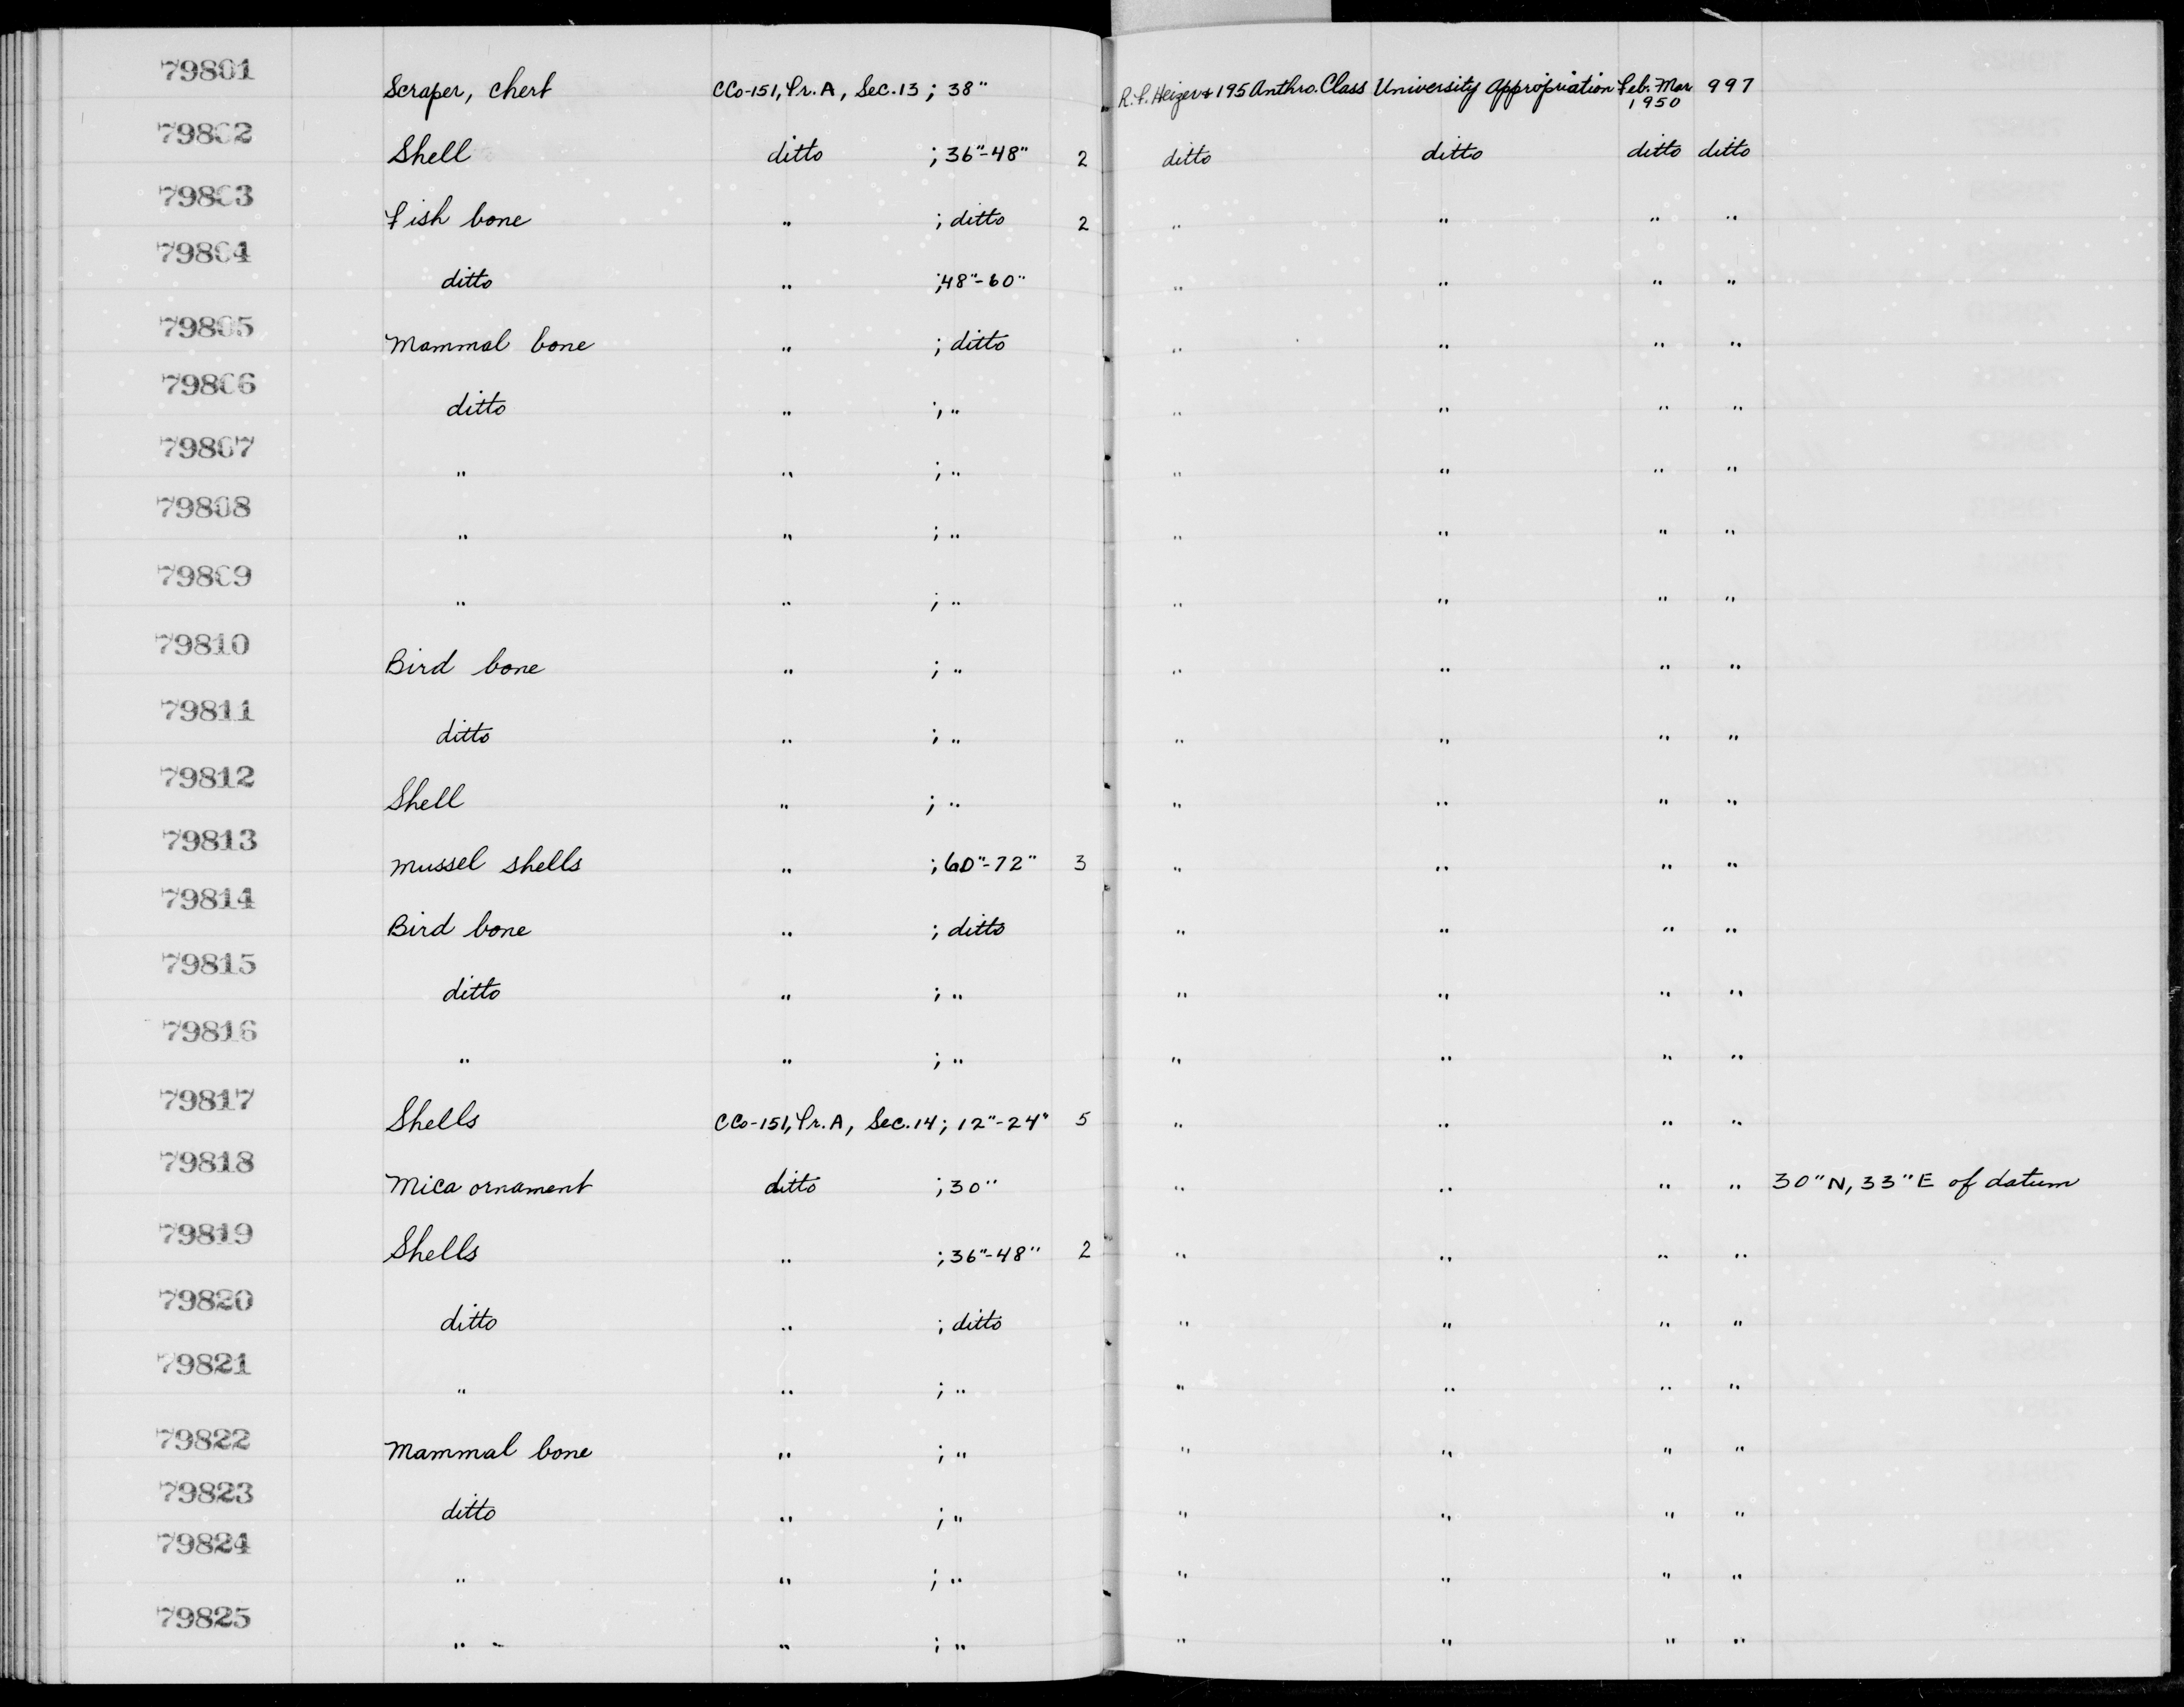 79801 Scraper, chert CCo-151, Tr. A, Sec. 13 ; 38" R.F. Heizer & 195 Anthro. Class University Appropriation Feb.-Mar 1950 997
79802 Shell ditto ; 36"-48" 2 ditto ditto ditto ditto
79803 Fish bone " ; ditto 2 " " " "
79804 ditto " ; 48"-60" " " " "
79805 Mammal bone " ; ditto " " " "
79806 ditto " ; " " " " "
79807 " " ; " " " " "
79808 " " ; " " " " "
79809 " " ; " " " " "
79810 Bird bone " ; " " " " "
79811 ditto " ; " " " " "
79812 Shell " ; " " " " "
79813 Mussel shells " ; 60"-72" 3 " " " "
79814 Bird bone " ; ditto " " " "
79815 ditto " ; " " " " "
79816 " " ; " " " " "
79817 Shells CCo-151, Tr. A, Sec. 14 ; 12"-24" 5 " " " "
79818 Mica ornament ditto ; 30" " " " " 30" N, 33" E of datum
79819 Shells " ; 36"-48" 2 " " " "
79820 ditto " ; ditto " " " "
79821 " " ; " " " " "
79822 Mammal bone " ; " " " " "
79823 ditto " ; " " " " "
79824 " " ; " " " " "
79825 " " ; " " " " "